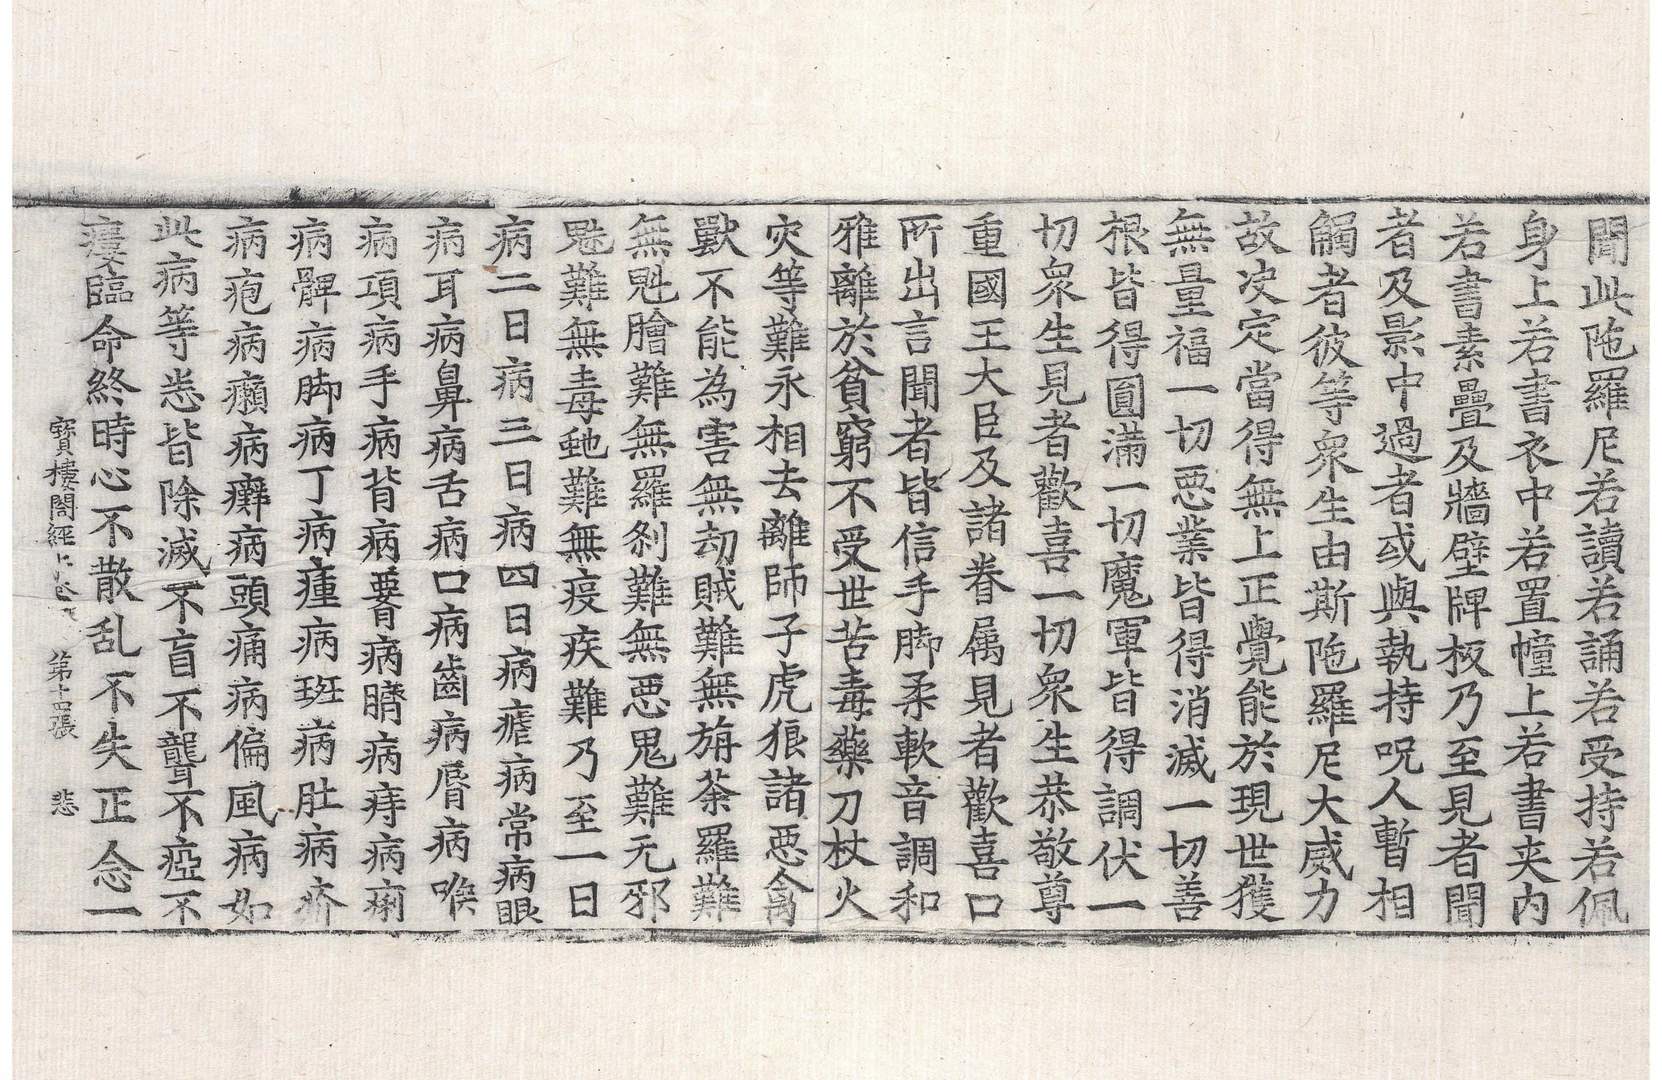 聞此陁羅尼若讀若誦若受持若佩
身上若書衣中若置幢上若書夹内
若書素疊及牆壁牌板乃至見者聞
者及影中過者或與執持呪人暫相
觸者彼等衆生由斯陁羅尼大威力
故决定當得無上正覺能於現世獲
無量福一切惡業皆得消滅一切善
根皆得圎滿一切魔軍皆得調伏一
切衆生見者歡喜一切衆生恭敬尊
重國王大臣及諸眷属見者歡喜口
所出言聞者皆信手脚柔軟音調和
雅離於貧窮不受世苦毒藥刀杖火
灾等難永相去離師子虎狼諸惡禽
獸不能為害無劫賊難無旃荼羅難
無鬼膾難無羅剎難無惡鬼難无邪
魅難無毒虵難無疫疾難乃至一日
病二日病三日病四日病瘧病常病眼
病耳病鼻病舌病口病齒病脣病喉
病項病手病背病署病臍病痔病痢
病髀病脚病丁病瘇病斑病肚病疥
病疱病癩病癬病頭痛病偏風病如
此病等悉皆除滅不盲不聾不瘂不
瘻臨命終時心不散乱不失正念一
寳樓閣經上卷 第十四張 悲